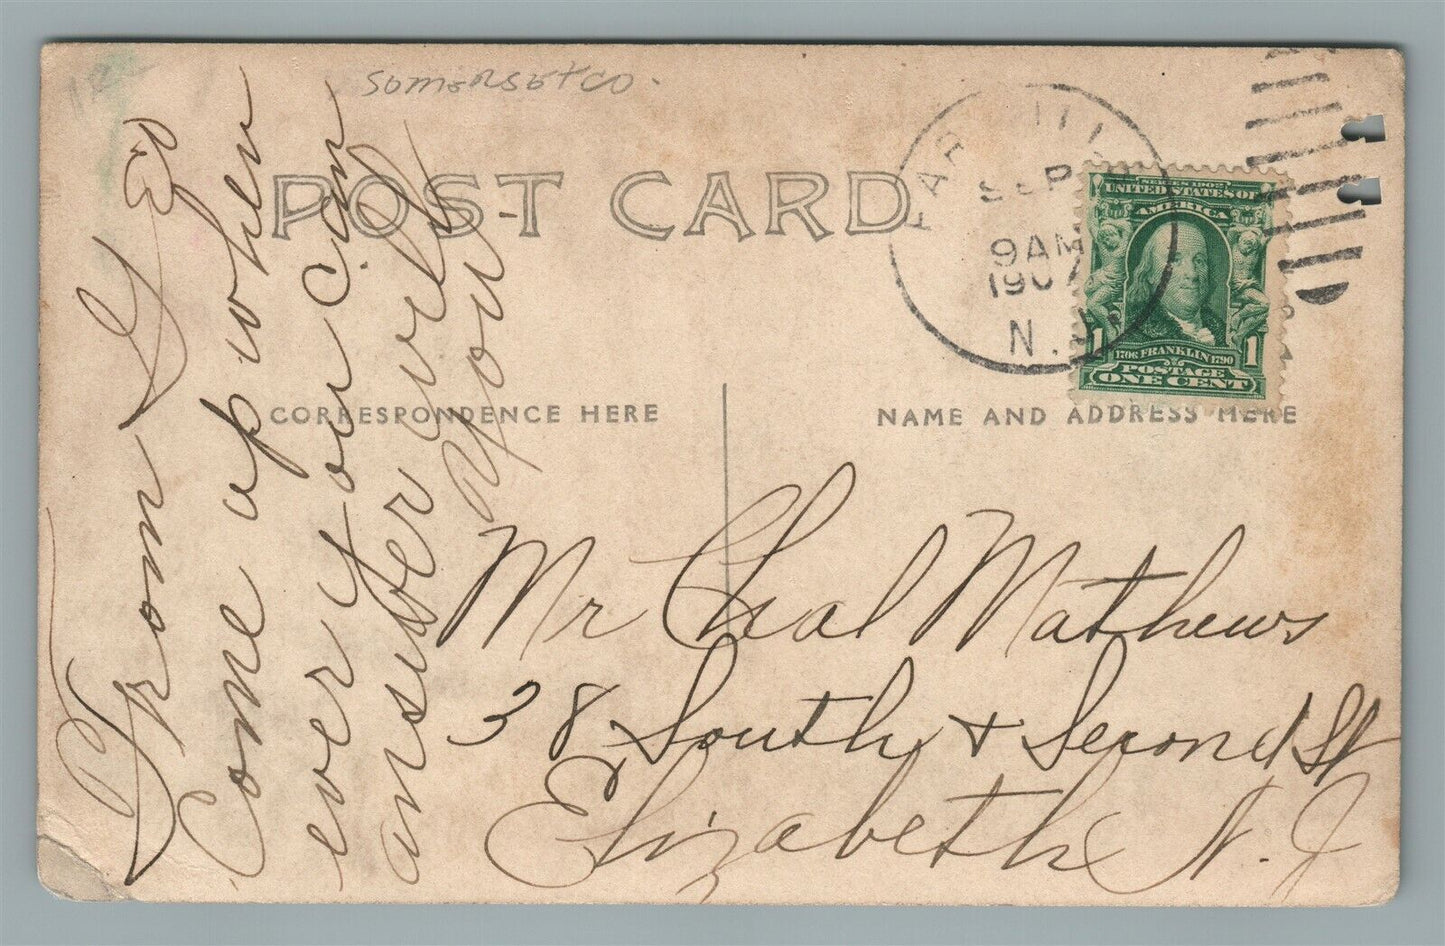 SOMERSET CO.
POST CARD
FAR HILLS
SEP
9 AM
1907
N.J.
SERIES 1902
UNITED STATES OF
AMERICA
1 1
1706 FRANKLIN 1790
POSTAGE
ONE CENT
CORRESPONDENCE HERE
NAME AND ADDRESS HERE
From G E
Come up when
ever you can
answer will
you
Mr Chal Mathews
38 South & Second St
Elizabeth N. J